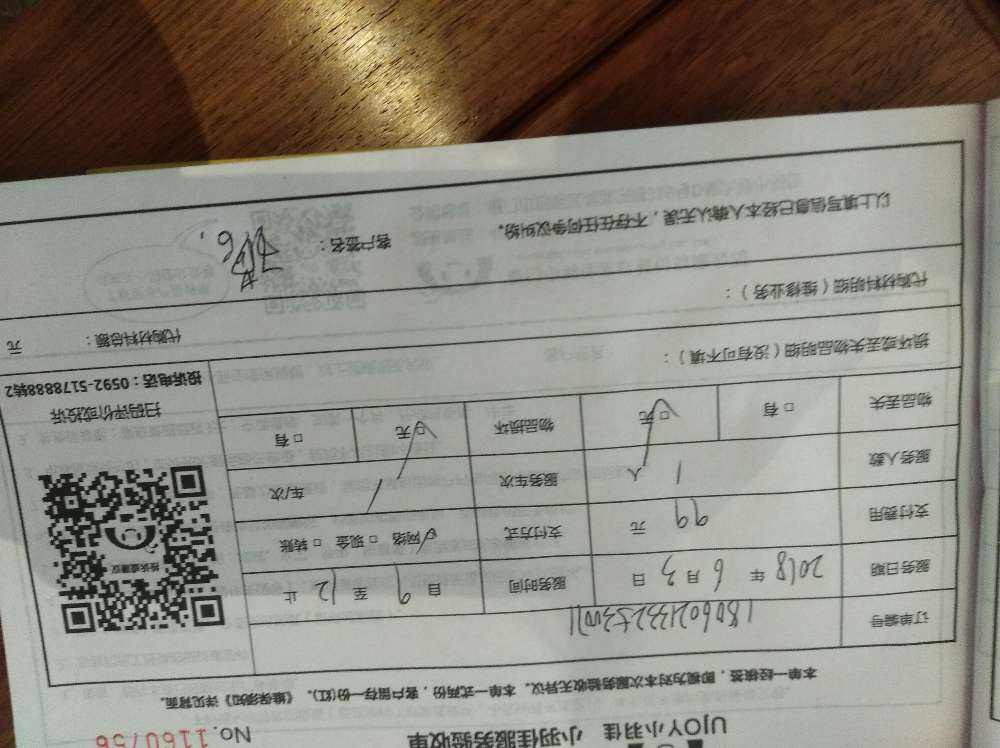 UJOY小羽佳 小羽佳服务验收单
No. 1160756
本单一经核签，即视为对本次服务验收无异议。本单一式两份，客户留存一份(红)。《维保须知》详见背面。
订单编号
服务日期 2018 年 6 月 3 日 服务时间 自 9 至 12 止
支付费用 99 元 支付方式 网络 □ 现金 □ 转账
服务人数 1 人 服务车次 / 车/次
物品丢失 □ 有 □ 无 物品损坏 □ 无 □ 有
投诉或建议
扫码评价或投诉
投诉电话：0592-5178888转2
损坏或丢失物品明细（没有可不填）：
代购材料明细（维修业务）：
代购材料总额： 元
以上填写信息已经本人确认无误，不存在任何争议纠纷。
客户签名：